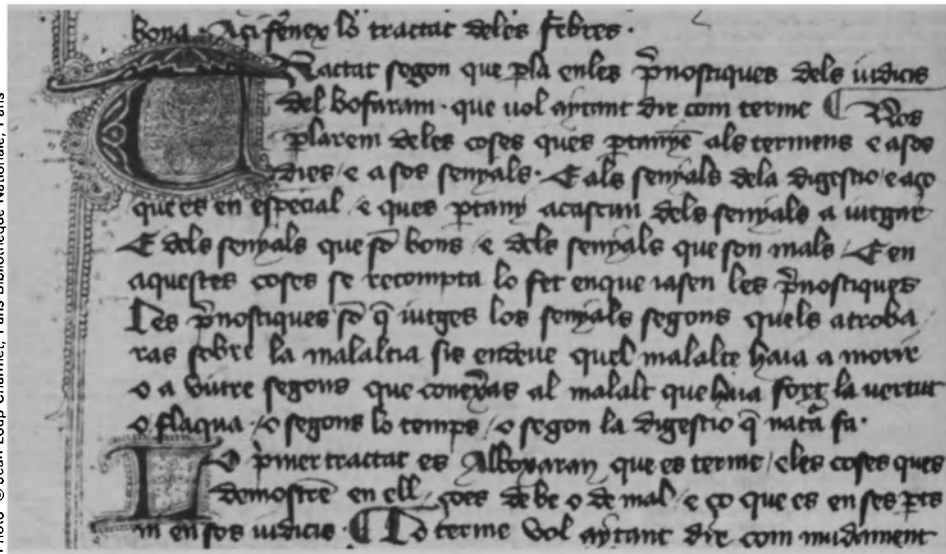 bona · Açi feneix lo tractat deles febres ·
Tractat segon que pla enles p̄nostiques dels iudicis
del bofaram · que vol aytant dir com terme ¶ Nos
plarem deles coses ques ptanyē als termens e asos
dies / e a sos senyals · E als senyals dela digestio / e aço
que es en especial / e ques ptany acascun dels senyals a iutgar
E dels senyals que sō bons / e dels senyals que son mals / E en
aquestes coses se recompta lo fet enque iasen les p̄nostiques
Les p̄nostiques sō q̄ iutges los senyals segons quels atroba
ras sobre la malaltia sis endeue quel malalte haia a morir
o a viure segons que conexras al malalt que haia fort la vertut
o flaqua / o segons lo temps / o segon la digestio q̄ natā fa ·
Lo pmer tractat es Alboxaran que es terme / eles coses ques
demostrē en ell / çoes de be o de mal / e ço que es en ses pts
ni en sos iudicis · ¶ Lo terme vol aytant dir com mudament
Photo © Jean-Loup Charmet, Paris Bibliothèque Nationale, Paris